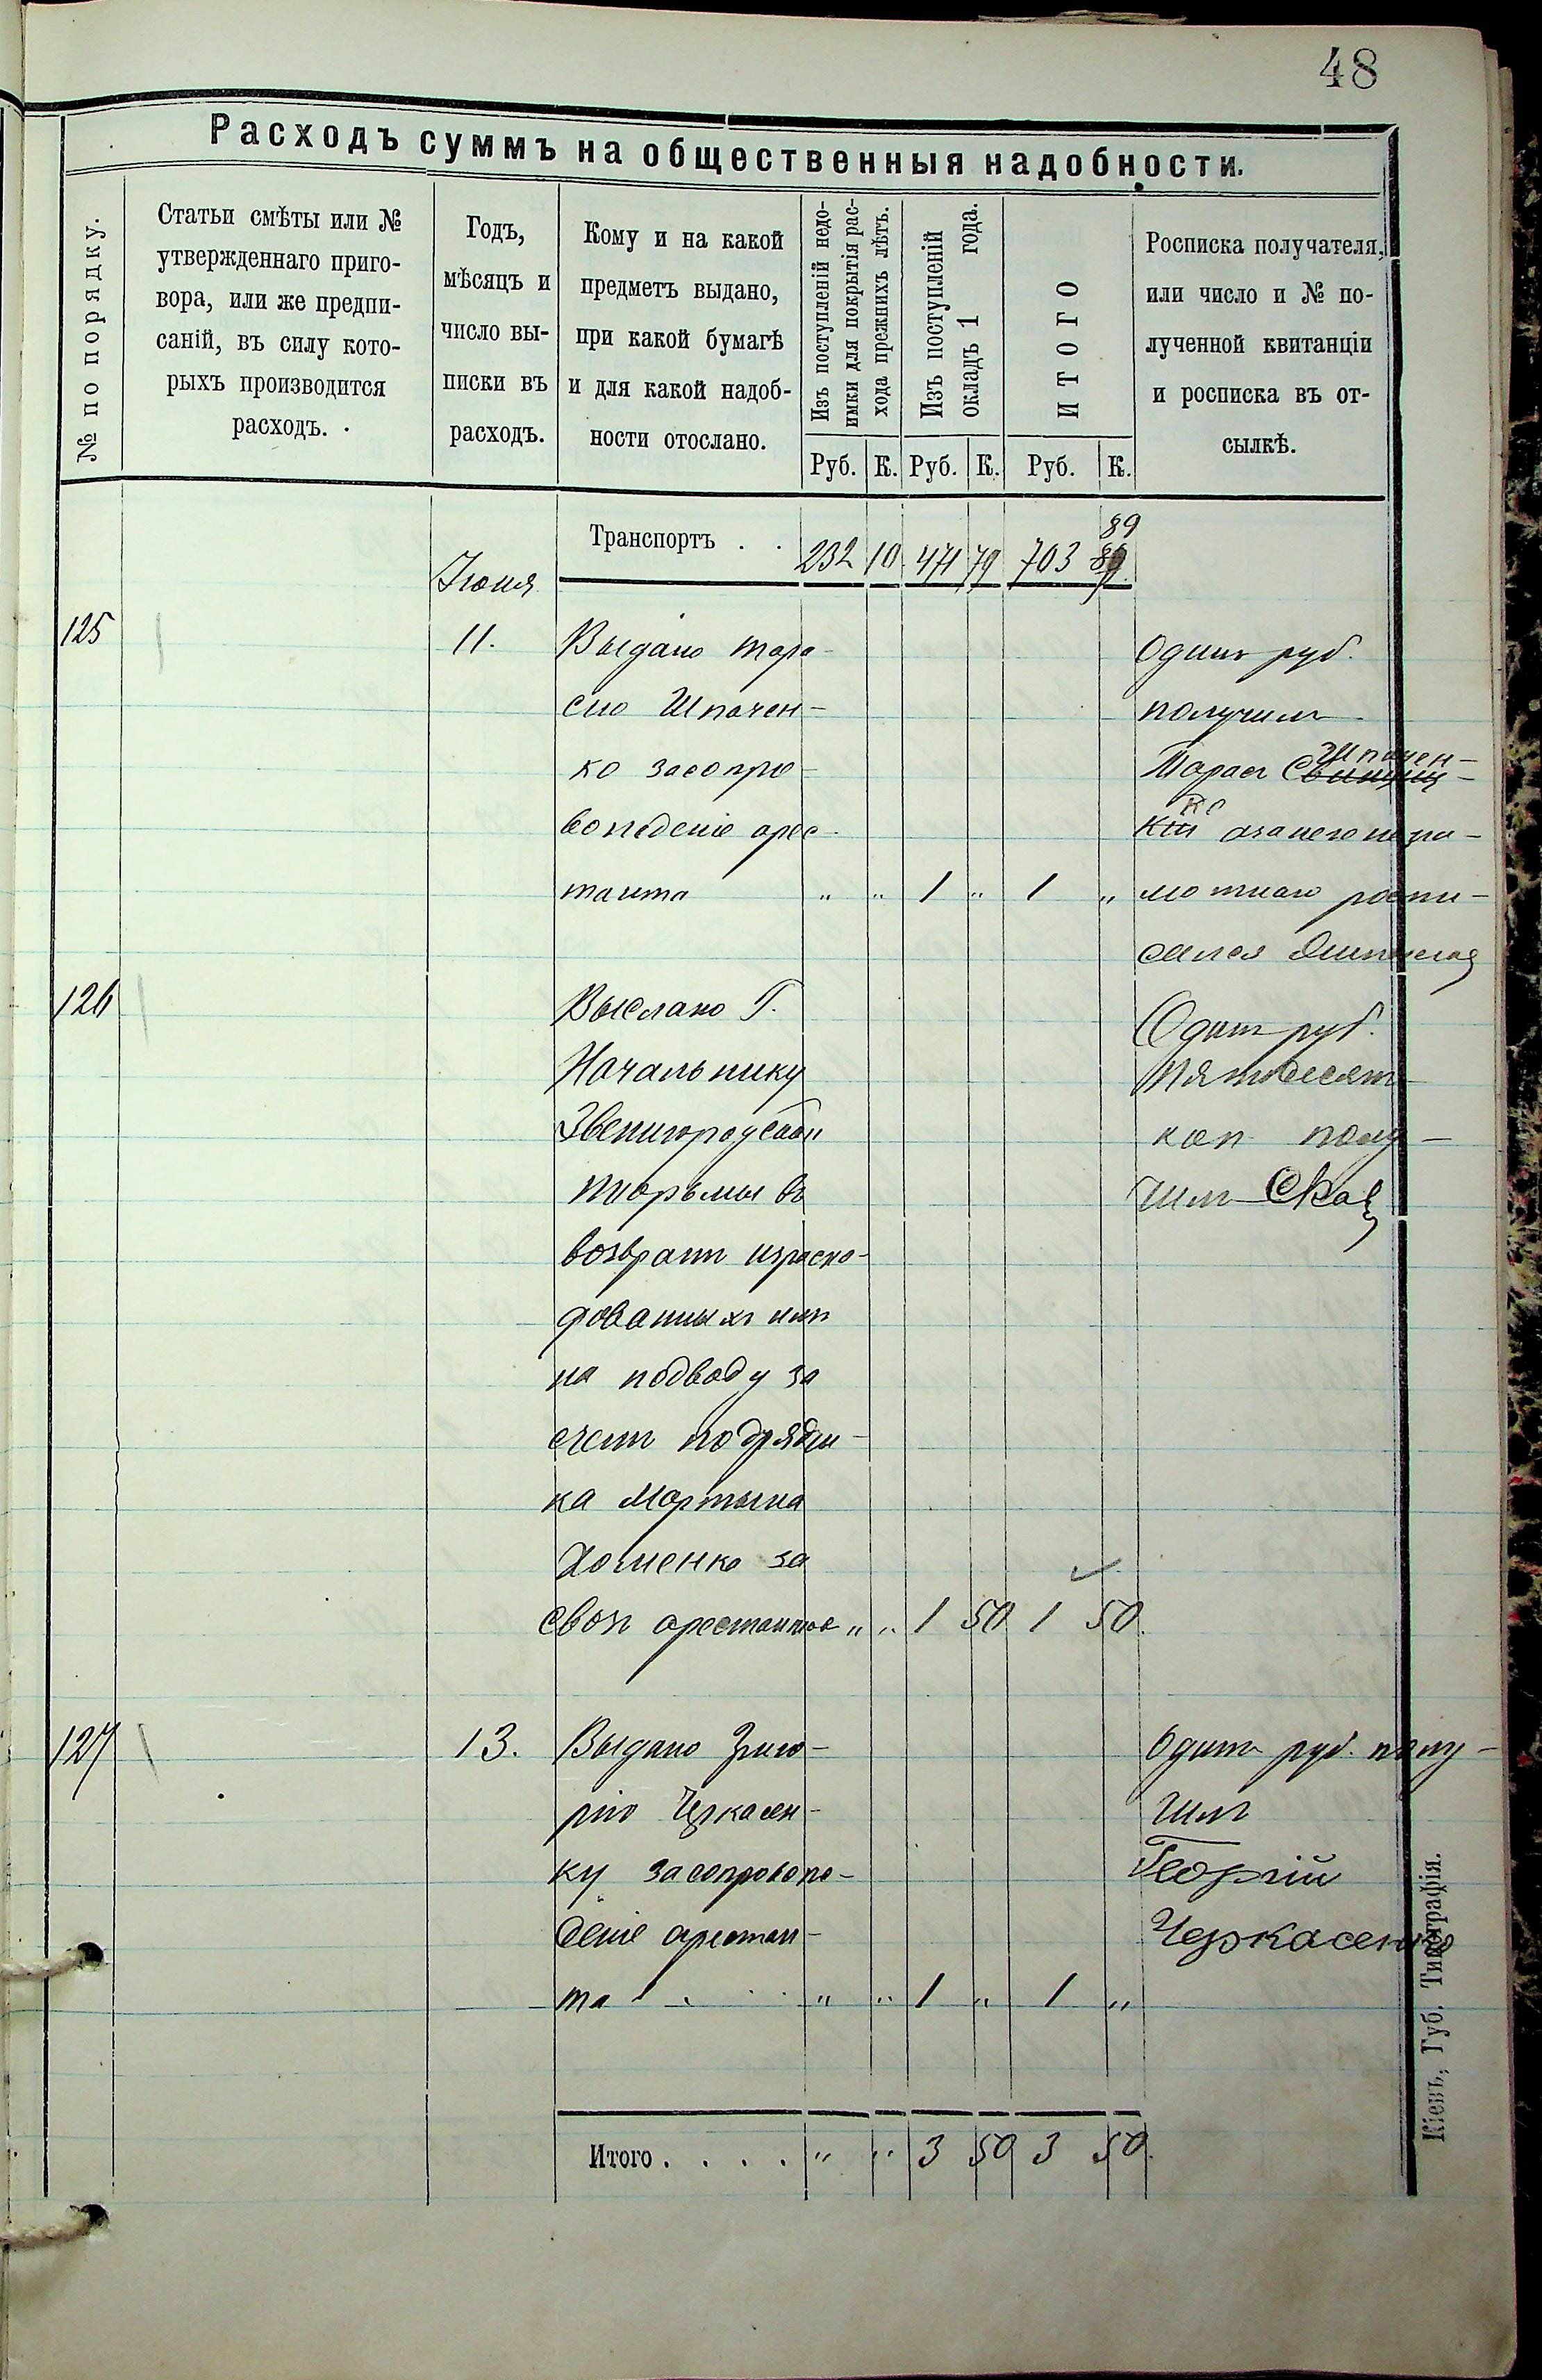 48
Расходъ суммъ на общественныя надобности.
№ по порядку.
Статьи смѣты или №
утвержденнаго приго-
вора, или же предпи-
саній, въ силу кото-
рыхъ производится
расходъ.
Годъ,
мѣсяцъ и
число вы-
писки въ
расходъ.
Кому и на какой
предметъ выдано,
при какой бумагѣ
и для какой надоб-
ности отослано.
Изъ поступленій недо-
имки для покрытія рас-
хода прежнихъ лѣтъ.
Изъ поступленій
окладъ 1 года.
ИТОГО
Росписка получателя,
или число и № по-
лученной квитанціи
и росписка въ от-
сылкѣ.
Руб. К. Руб. К. Руб. К.
89
Транспортъ . . 232 10 471 79 703 89
Іюня
125 11. Выдано Тара-
сію Шпачен-
ко засопро-
вожденіе арес-
танта " " 1 " 1 "
Одинъ руб.
получилъ
Тарасъ Шпачен-
ко азанего негра-
мотнаго распи-
сался
126 Выслано Г.
Начальнику
Звенигородской
тюрьмы въ
возвратъ израсхо-
дованныхъ имъ
на подводу за
счетъ подрядчи-
ка Мартына
Хоменко за
своз арестантов " " 1 50 1 50.
Одинъ руб.
пятьдесятъ
коп. полу-
чилъ
127 13. Выдано Григо-
рію Черкасен-
ку засопровож-
деніе арестан-
та . . . " " 1 " 1 "
Одинъ руб. полу-
чилъ
Георгій
Черкасенко
Итого . . . . " " 3 50 3 50.
Кіевъ, Губ. Типографія.